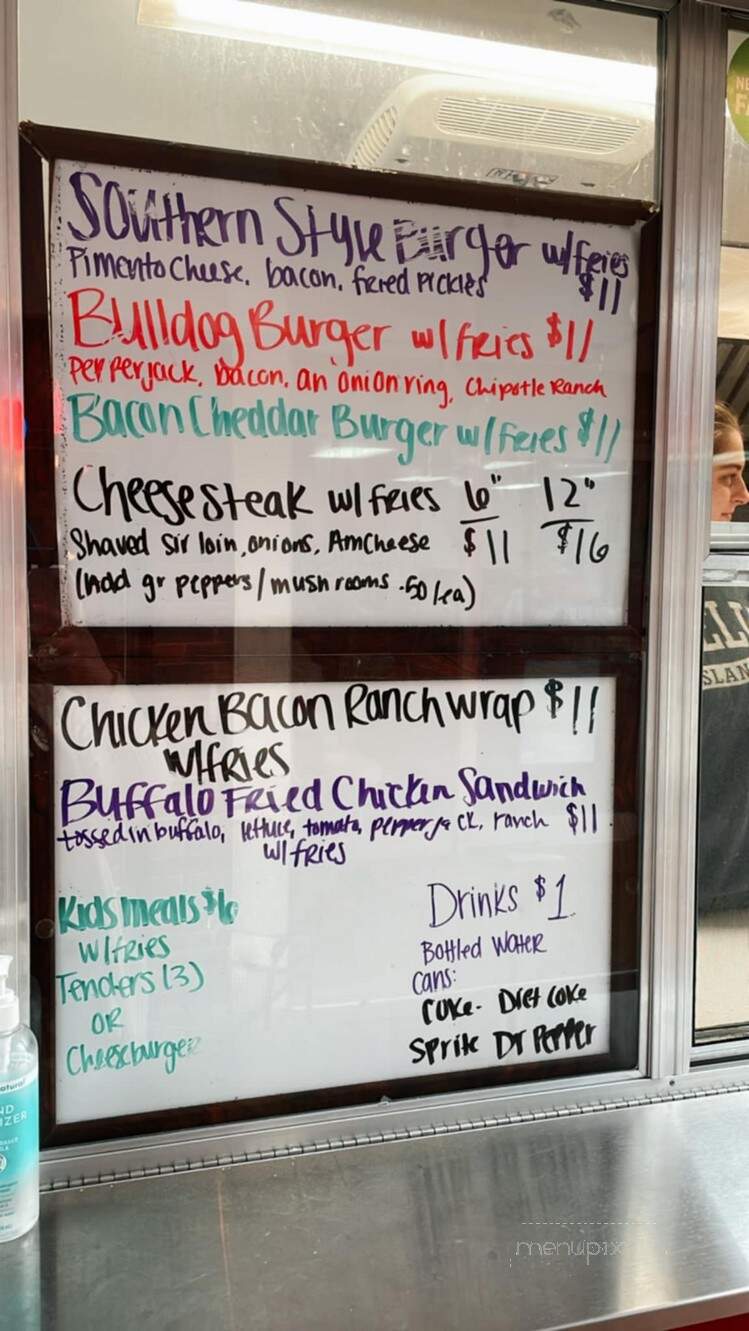 Southern Style Burger w/fries
Pimento Cheese, bacon, fried pickles $11
Bulldog Burger w/ fries $11
Pepperjack, bacon, an onion ring, Chipotle Ranch
Bacon Cheddar Burger w/fries $11
Cheesesteak w/ fries 6" 12"
Shaved sirloin, onions, Am Cheese $11 $16
(Add gr peppers/mushrooms .50/ea)
Chicken Bacon Ranch wrap $11
w/fries
Buffalo Fried Chicken Sandwich
tossed in buffalo, lettuce, tomato, pepperjack, ranch $11
w/fries
Kids meals $6
w/fries
Tenders (3)
OR
Cheeseburger
Drinks $1
Bottled Water
Cans:
Coke - Diet Coke
Sprite Dr Pepper
menupix